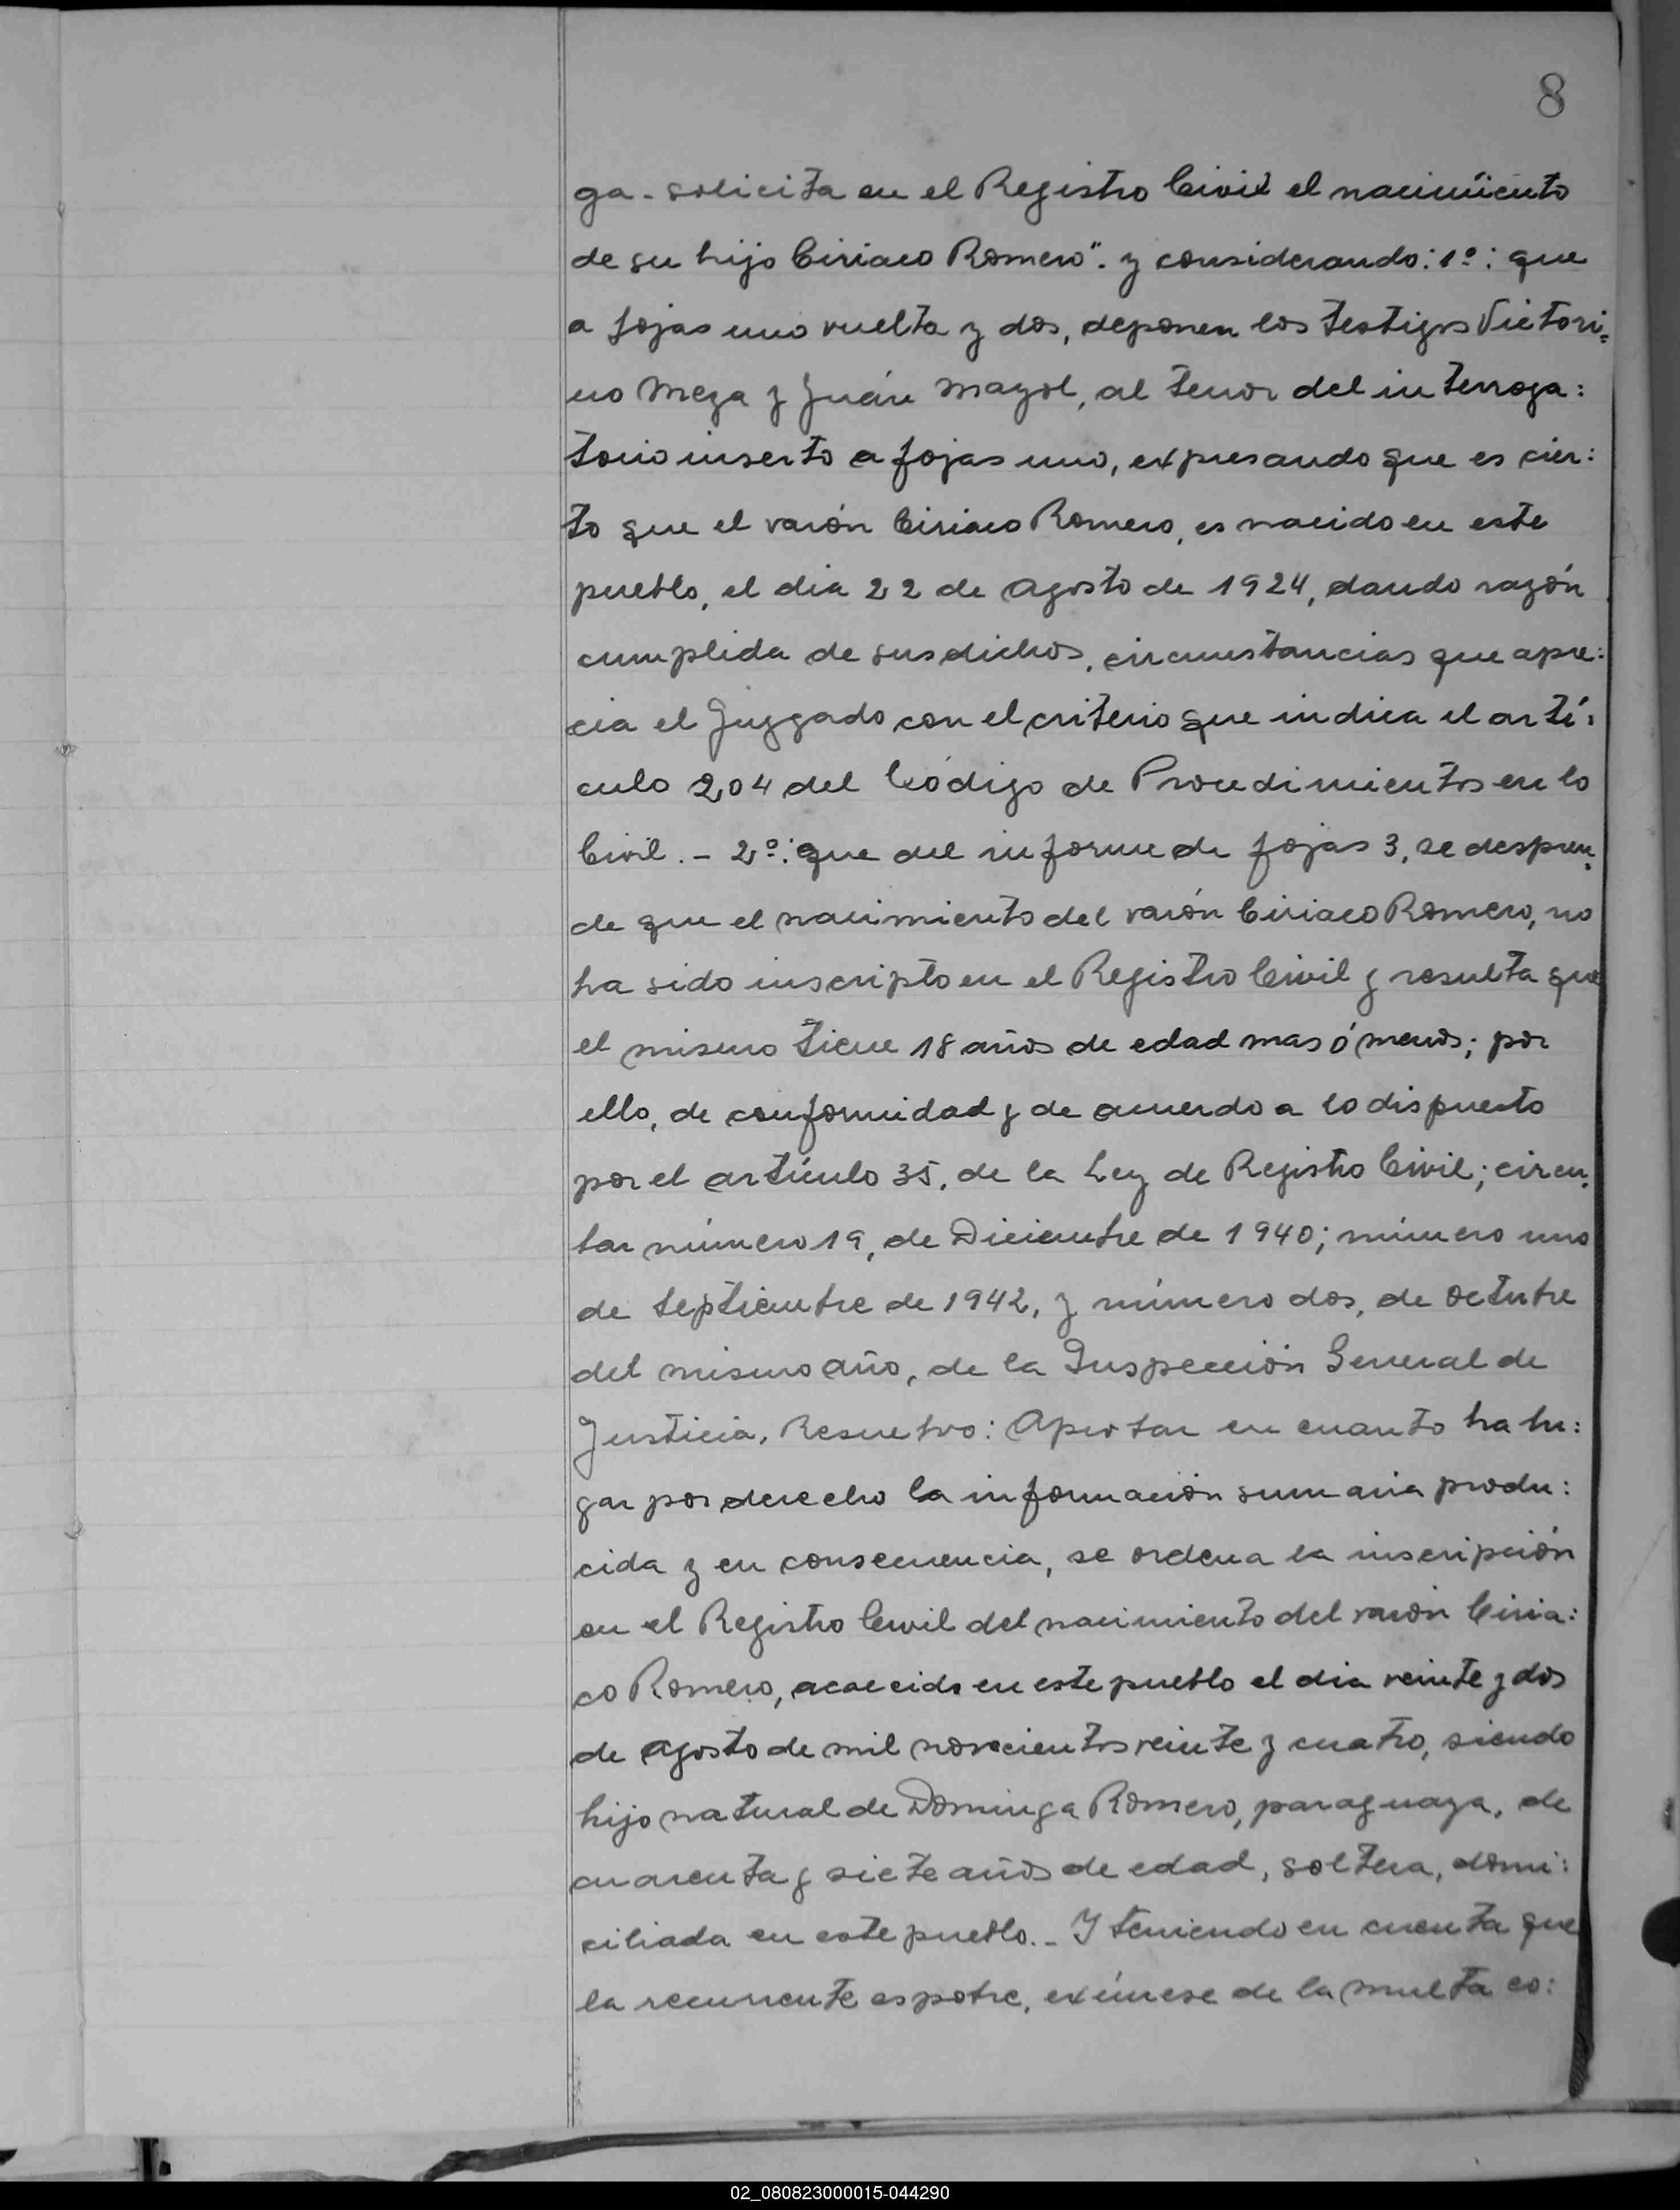 8
ga - solicita en el Registro Civil el nacimiento
de su hijo Ciriaco Romero". y considerando: 1º: que
a fojas uno vuelta y dos, deponen los testigos Victori=
no Meza y Juán Mayol, al tenor del interroga:
torio inserto a fojas uno, expresando que es cier:
to que el varón Ciriaco Romero, es nacido en este
pueblo, el dia 22 de Agosto de 1924, dando razón
cumplida de sus dichos, circunstancias que apre:
cia el Juzgado con el criterio que indica el artí:
culo 204 del Código de Procedimientos en lo
Civil. - 2º: que del informe de fojas 3, se despren=
de que el nacimiento del varón Ciriaco Romero, no
ha sido inscripto en el Registro Civil y resulta que
el mismo tiene 18 años de edad mas ó menos; por
ello, de conformidad y de acuerdo a lo dispuesto
por el artículo 35, de la Ley de Registro Civil; circu=
lar número 19, de Diciembre de 1940; número uno
de Septiembre de 1942, y número dos, de Octubre
del mismo año, de la Inspección General de
Justicia, Resuelvo: Aprobar en cuanto ha lu:
gar por derecho la información sumaria produ:
cida y en consecuencia, se ordena la inscripción
en el Registro Civil del nacimiento del varón Ciria:
co Romero, acaecido en este pueblo el dia veinte y dos
de Agosto de mil novecientos veinte y cuatro, siendo
hijo natural de Dominga Romero, paraguaya, de
cuarenta y siete años de edad, soltera, domi:
ciliada en este pueblo. - Y teniendo en cuenta que
la recurrente es pobre, exímese de la multa co:
02_080823000015-044290